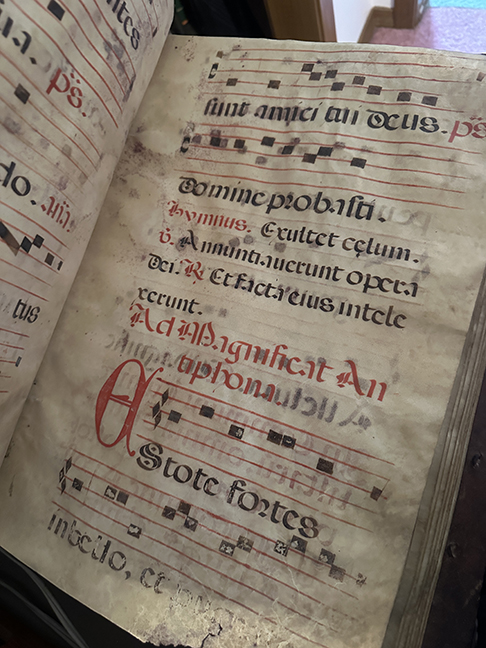 tes
ia. ps.
do.
tus
sunt amici tui deus. ps
Domine probasti.
hymnus. Exultet celum.
v. Annuntiauerunt opera
Dei. R Et facta eius intele
xerunt.
Ad Magnificat An
tiphona.
EStote fortes
in bello, et